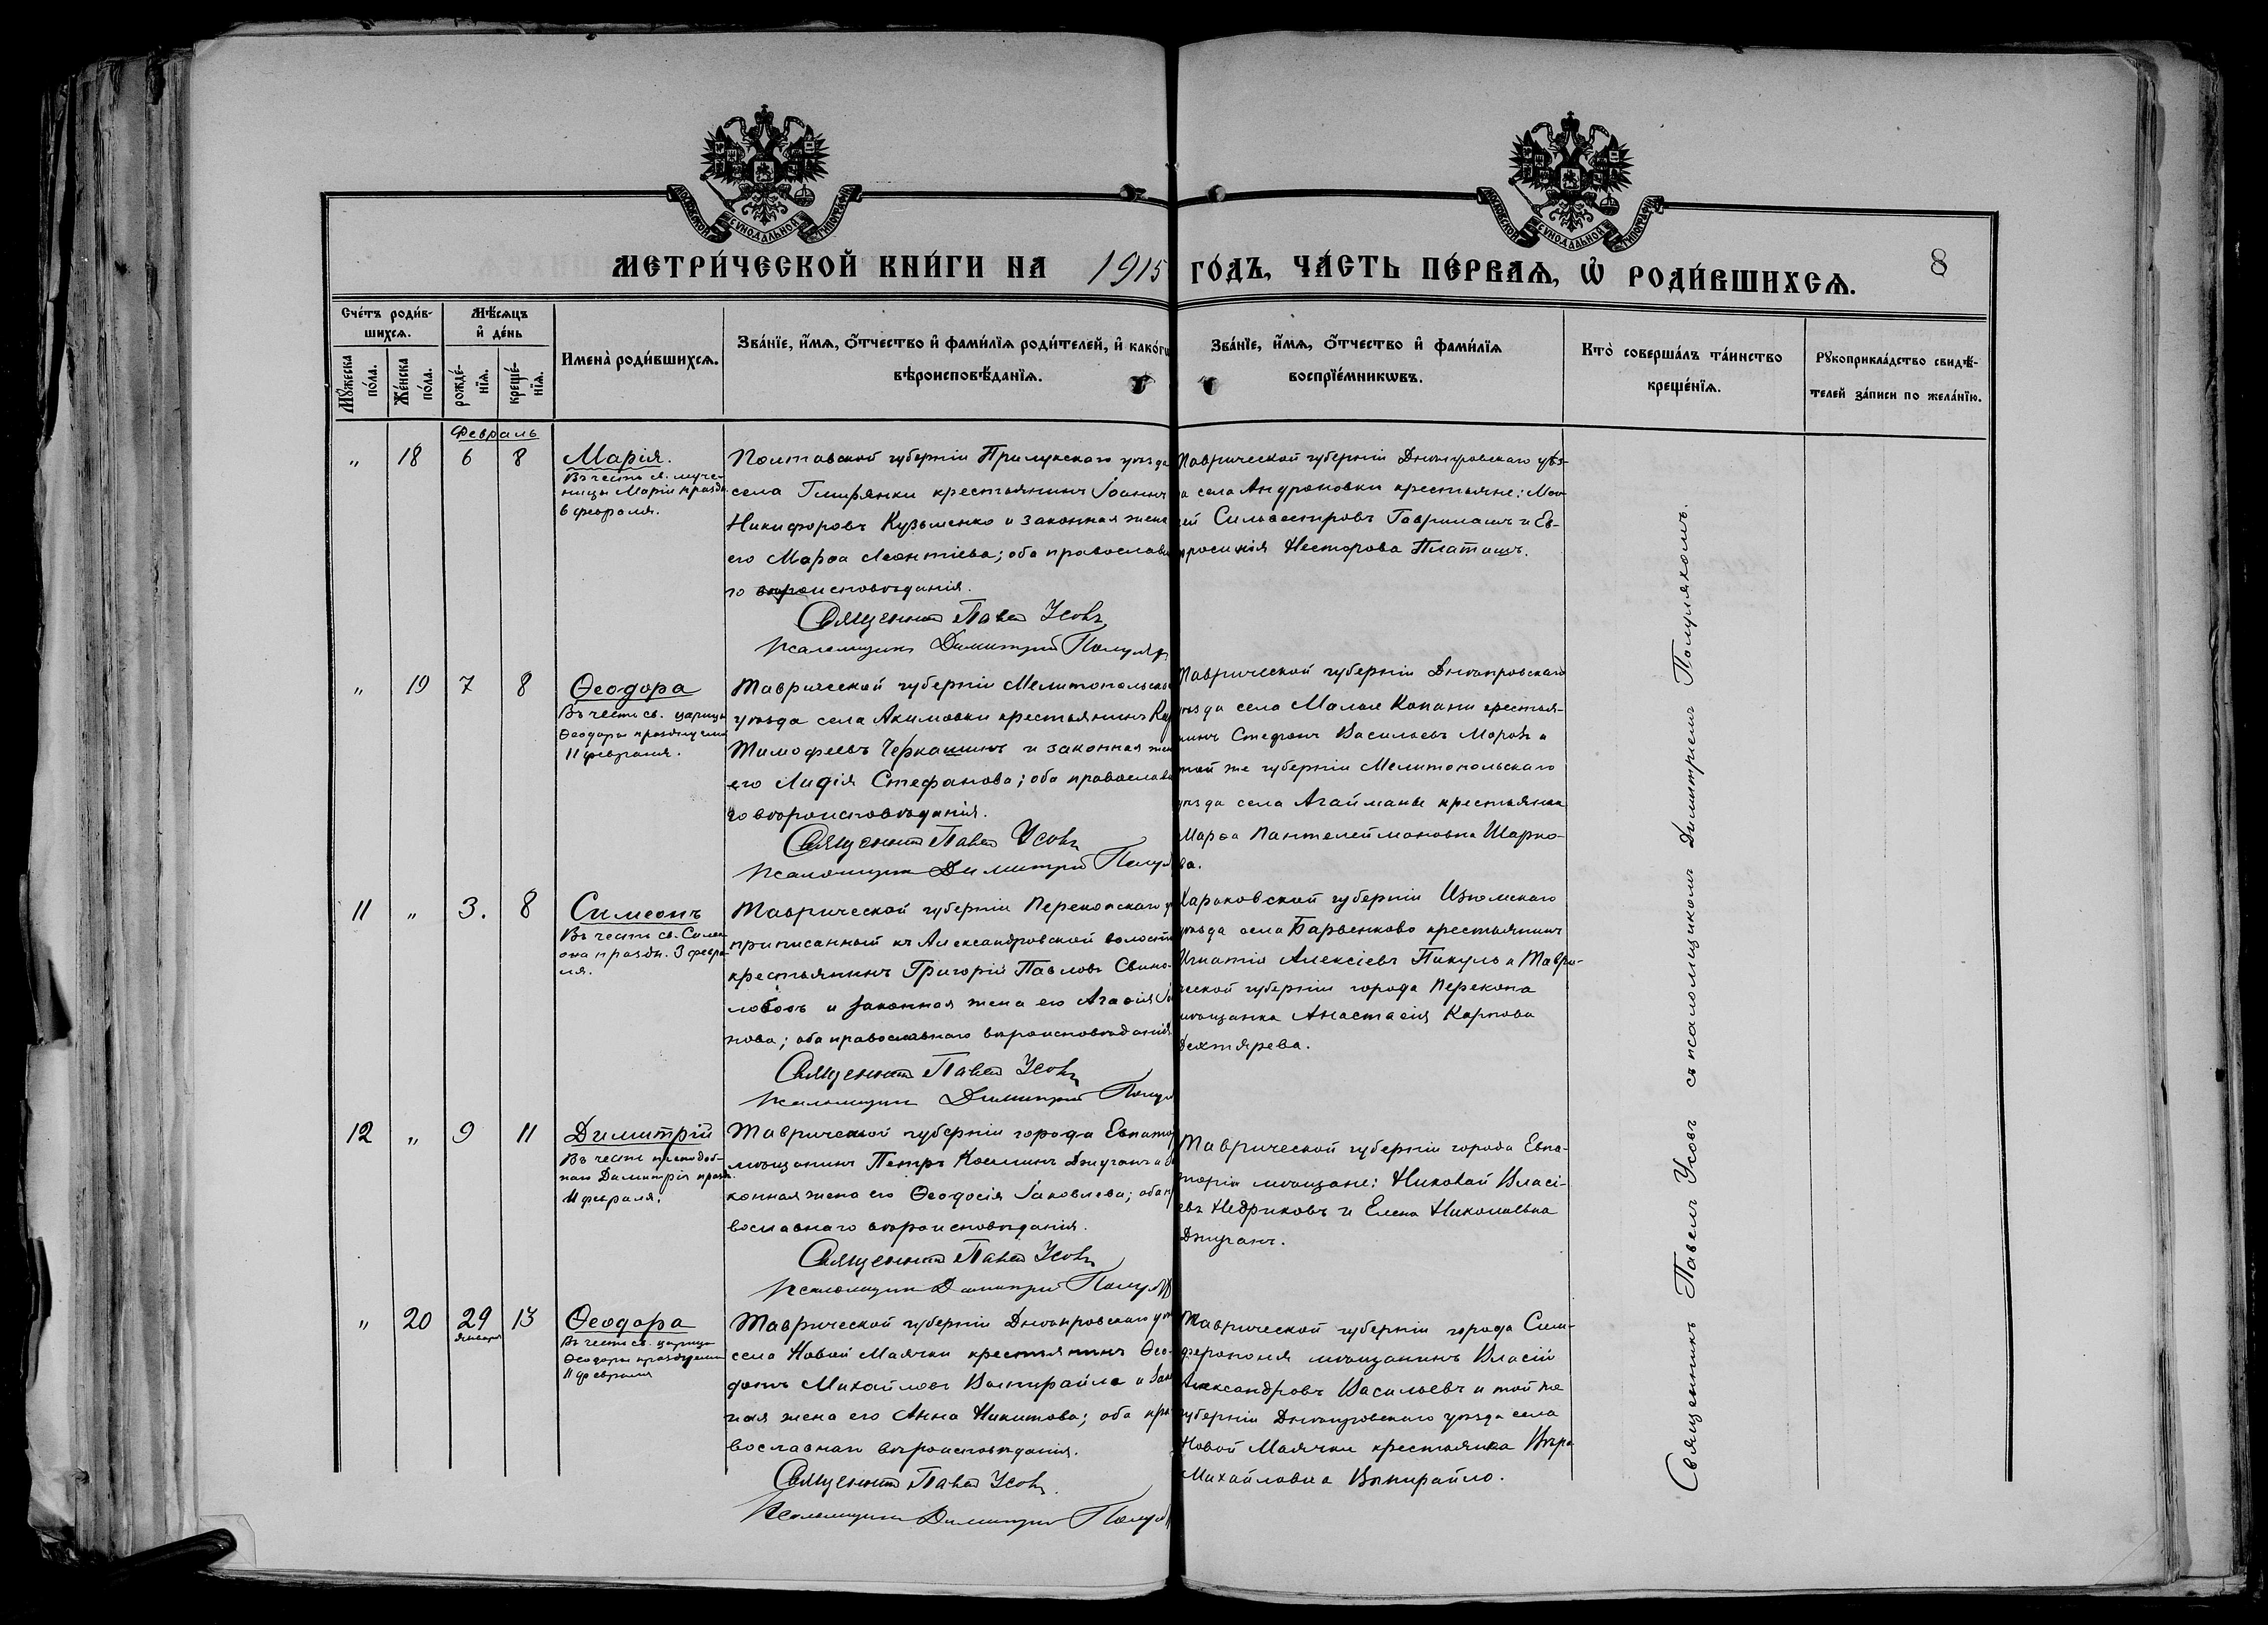 МОСКОВСКОЙ СУНОДАЛЬНОЙ ТИПОГРАФІИ
МОСКОВСКОЙ СУНОДАЛЬНОЙ ТИПОГРАФІИ
МЕТРИ́ЧЕСКОЙ КНИ́ГИ НА 1915 ГО́ДЪ, ЧА́СТЬ ПЕ́РВАѦ, Ѡ҆ РОДИ́ВШИХСѦ.
8
Сче́тъ роди́в-
шихсѧ.
Мѣ́сяцъ
и҆ де́нь
Мꙋ́жеска
по́ла.
Же́нска
по́ла.
рожде́-
нїѧ.
креще́-
нїѧ.
Имена̀ роди́вшихсѧ.
Зва́нїе, и҆́мѧ, ѻ҆́тчество и҆ фами́лїѧ роди́телей, и҆ како́гѡ
вѣроисповѣ́данїѧ.
Зва́нїе, и҆́мѧ, ѻ҆́тчество и҆ фами́лїѧ
воспрїе́мникѡвъ.
Кто̀ соверша́лъ та́инство
креще́нїѧ.
Рꙋкоприкла́дство свидѣ́-
телей за́писи по жела́нїю.
Февраль
" 18 6 8
Марія.
Въ честь м. муче-
ницы Маріи праздн.
6 февраля.
Полтавской губерніи Прилукскаго уѣзда
села Гмырянки крестьянинъ Іоаннъ
Никифоровъ Кузьменко и законная жена
его Марѳа Леонтіева; оба православна
го вѣроисповѣданія.
Священникъ Павелъ Усовъ
Псаломщикъ Димитрій
Таврической губерніи Днѣпровскаго уѣз-
да села Андроновки крестьяне: Мои
сей Сильвестровъ Гаврилашъ и Ев-
фросинія Несторова Платашъ.
" 19 7 8
Ѳеодора
Въ честь св. царицы
Ѳеодоры празднуемой
11 февраля.
Таврической губерніи Мелитопольскаго
уѣзда села Акимовки крестьянинъ
Тимофеевъ Черкашинъ и законная жена
его Лидія Стефанова; оба православна
го вѣроисповѣданія.
Священникъ Павелъ Усовъ
Псаломщикъ Димитрій
Таврической губерніи Днѣпровскаго
уѣзда села Малые Копани крестья-
нинъ Стефанъ Васильевъ Морозъ и
той же губерніи Мелитопольскаго
уѣзда села Агайманы крестьянка
Марѳа Пантелеймоновна Шарко-
ва.
11 " 3. 8
Симеонъ
Въ честь св. Симе
она праздн. 3 февра-
ля.
Таврической губерніи Перекопскаго у
приписанный къ Александровской волости
крестьянинъ Григорій Павловъ Свино-
лобовъ и законная жена его Агафія
нова; оба православнаго вѣроисповѣданія
Священникъ Павелъ Усовъ
Псаломщикъ Димитрій
Харьковской губерніи Изюмскаго
уѣзда села Барвенково крестьянинъ
Игнатій Алексіевъ Пикуль и Таври-
ческой губерніи города Перекопа
мѣщанка Анастасія Карпова
Дехтярева.
12 " 9 11
Димитрій
Въ честь преподоб-
наго Димитрія праздн.
11 февраля.
Таврической губерніи города Евпатор
мѣщанинъ Петръ Косминъ Джуганъ и за
конная жена его Ѳеодосія Іаковлева; оба пра
вославнаго вѣроисповѣданія.
Священникъ Павелъ Усовъ
Псаломщикъ Димитрій
Таврической губерніи города Евпа-
торіи мѣщане: Николай Власі-
евъ Недриковъ и Елена Николаевна
Джуганъ.
" 20 29 13
Января
Ѳеодора
Въ честь св. царицы
Ѳеодоры празднуемой
11 февраля
Таврической губерніи Днѣпровскаго уѣз
села Новой Маячки крестьянинъ Ѳео-
дотъ Михайловъ Выпирайло и закон
ная жена его Анна Никитова; оба пра
вославнаго вѣроисповѣданія.
Священникъ Павелъ Усовъ.
Псаломщикъ Димитрій
Таврической губерніи города Сим-
ферополя мѣщанинъ Власій
Александровъ Васильевъ и той же
губерніи Днѣпровскаго уѣзда села
Новой Маячки крестьянка Вѣра
Михайловна Выпирайло.
Священникъ Павелъ Усовъ съ псаломщикомъ Димитріемъ Полуляхомъ.